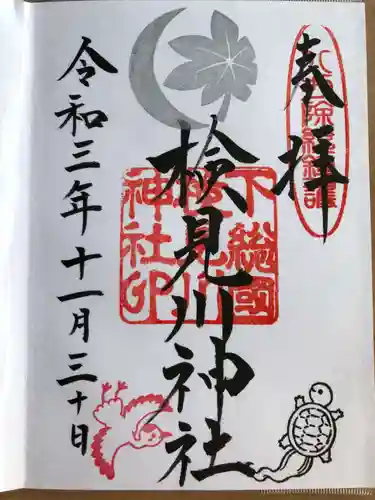 奉拝
検見川神社
令和三年十一月三十日
下総國
検見川
神社印